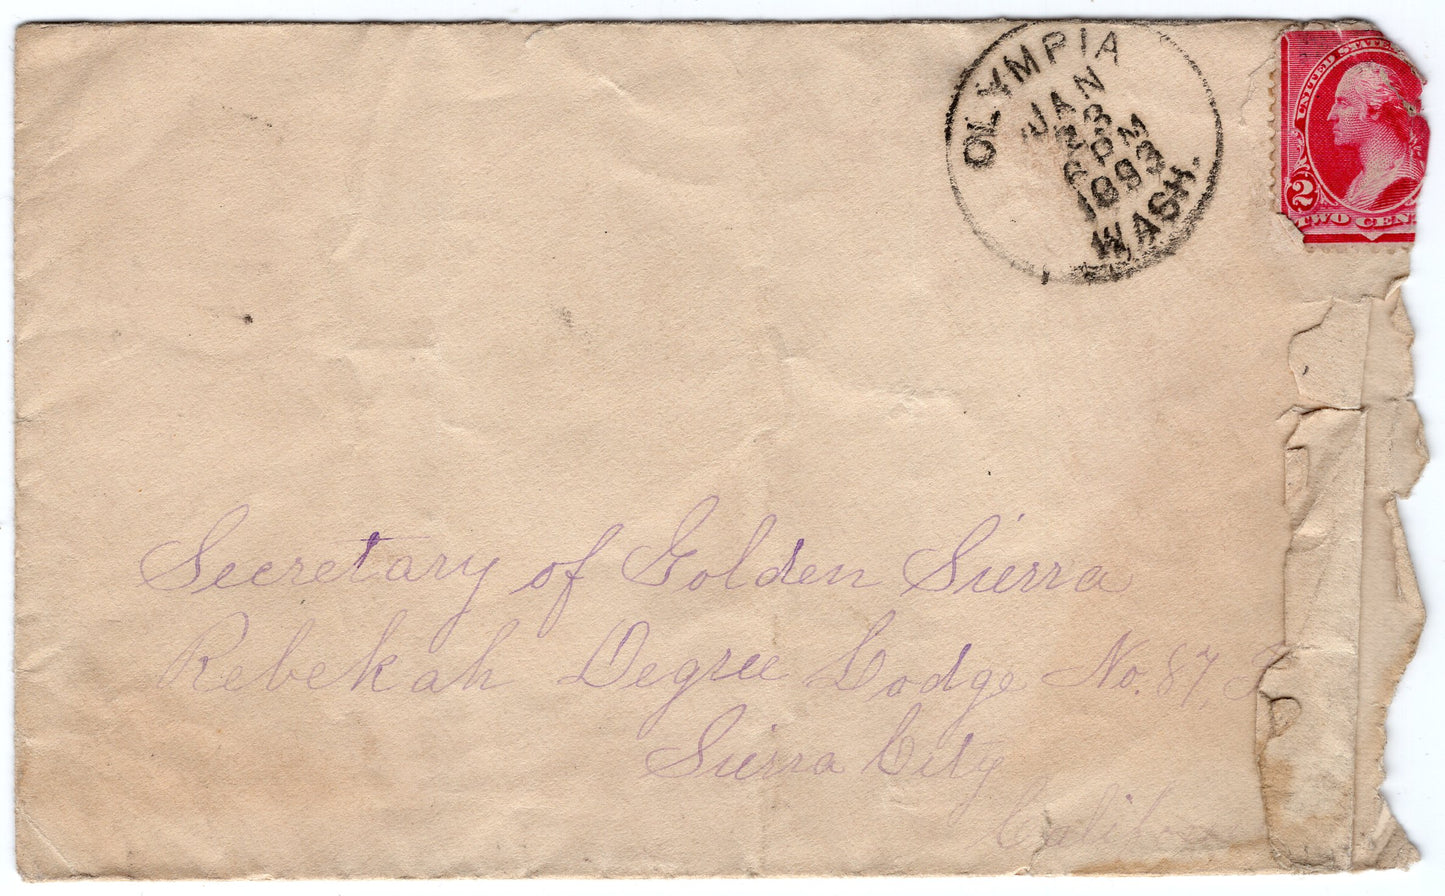 OLYMPIA
JAN
23
6 PM
1893
WASH.
UNITED STATES
2
TWO CENT
Secretary of Golden Sierra
Rebekah Degree Lodge No. 87,
Sierra City
California